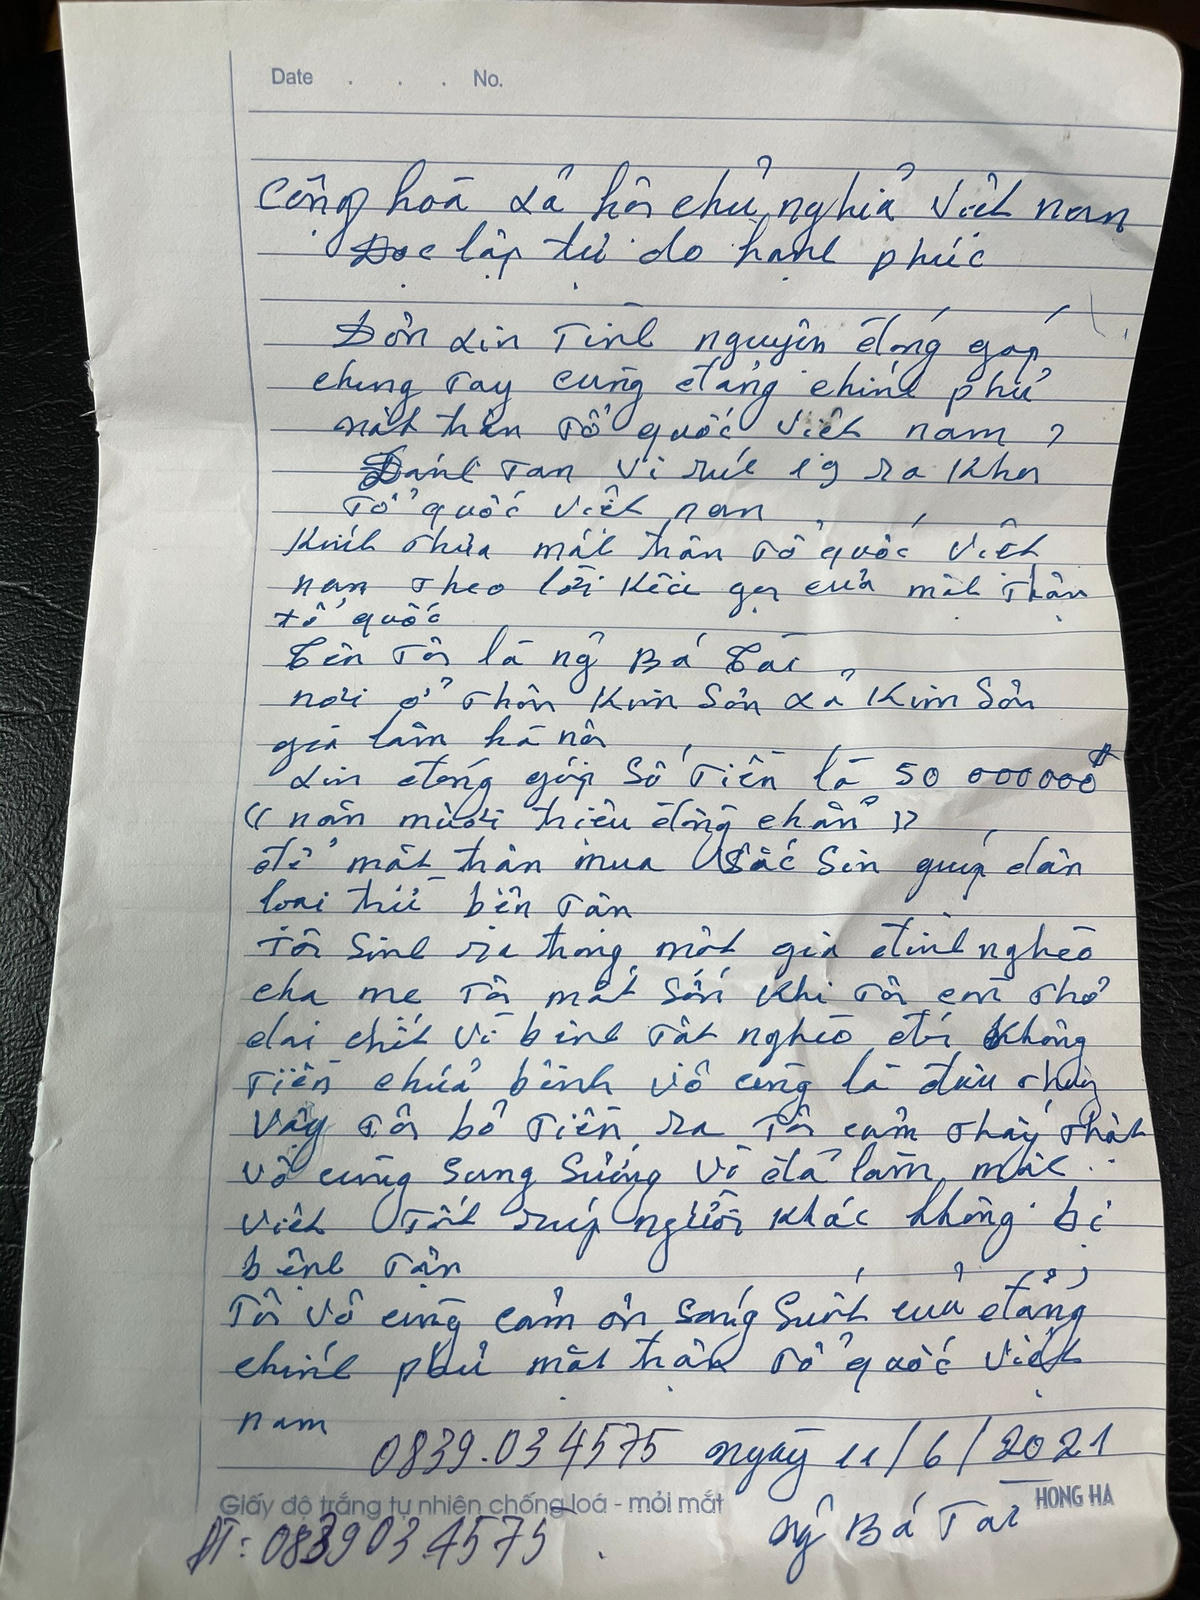 Date . . . No.
Cộng hoà xả hôi chủ nghiả Việt nam
Đọc lập tự do hạnh phúc
Đơn xin Tinh nguyện đóng góp
chung Tay cung đảng chính phủ
mặt trân Tổ quốc Việt nam ?
Đánh Tan Vi rút 19 ra Khỏ
Tổ quốc Việt nam
Kính Thưa mát trân Tổ quốc Việt
nam Theo lời Kêu gọ của mặt Trận
tổ quốc
Tên Tôi là ngô Bá Tài
nơi ở Thôn Kim Sơn xả Kim Sơn
gia lâm hà nôi
xin đóng góp Số Tiền là 50 000000đ
(( năm mươi triêu đồng chẵn ))
để măt trân mua Vắc Sin giúp dân
loai trừ bên Tân
Tôi Sinh ra trong môt gia đình nghèo
cha me Tôi mất Sớm Khi Tôi còn Thơ
dai chết Vì bênh Tât nghèo đói không
Tiền chửa bênh Vô cùng là đau Thuy
Vậy Tôi bỏ Tiền ra Tôi cảm Thấy Thât
Vô cùng Sung Sướng Vì đả làm môt
Viêt Tốt rúp người Khác không bị
bệnh Tân
Tôi Vô cùng cảm ơn Sáng Suốt của đảng
chính phủ măt trân Tổ quốc Việt
nam
0839.034575 ngày 11/6/2021
Giấy độ trắng tự nhiên chống loá - mỏi mắt HONG HA
ĐT: 0839034575 ngô Bá Tài